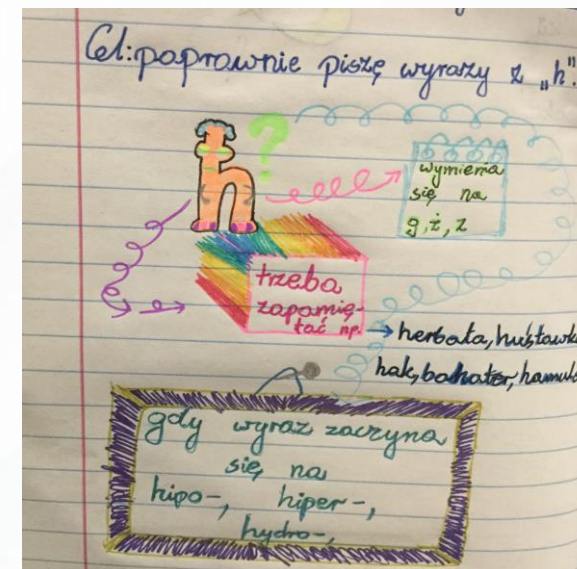 Cel: poprawnie piszę wyrazy z „h".
h?
wymienia
się na
g, ż, z
trzeba
zapamię-
tać np.
herbata, huśtawka
hak, bohater, hamule
gdy wyraz zaczyna
się na
hipo-, hiper-,
hydro-,